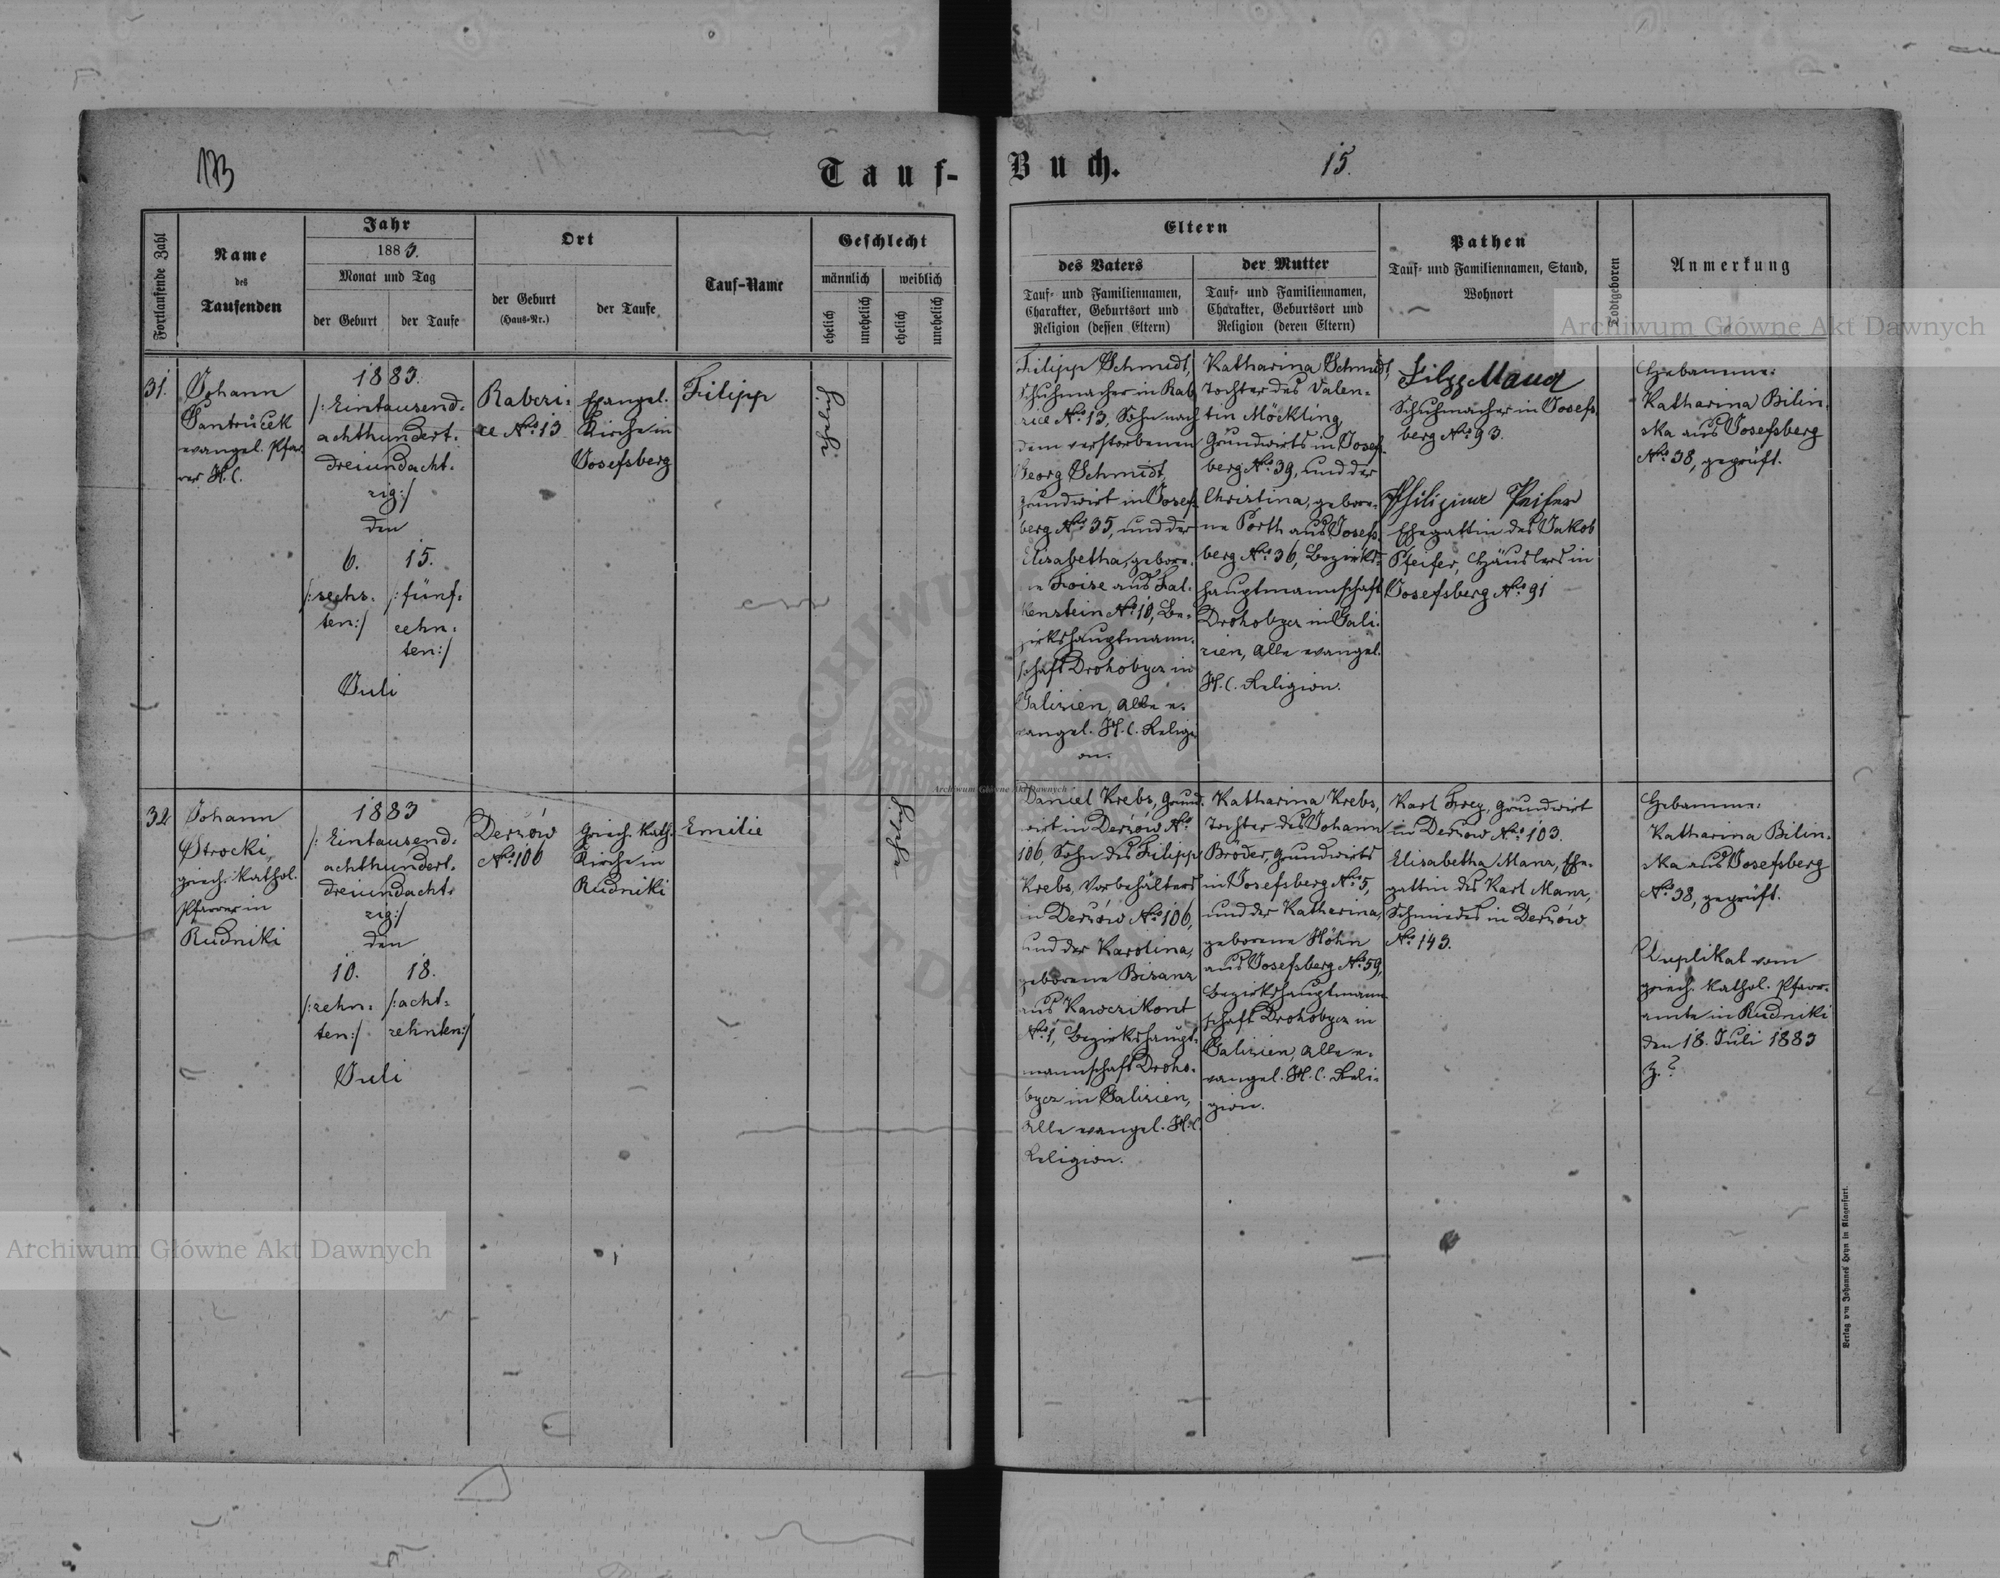 173
Tauf-
Buch.
15.
Fortlaufende Zahl
Name
des
Taufenden
Jahr
1883.
Monat und Tag
der Geburt
der Taufe
Ort
der Geburt
(Haus-Nr.)
der Taufe
Tauf-Name
Geschlecht
männlich
weiblich
ehelich
unehelich
ehelich
unehelich
Eltern
des Vaters
Tauf- und Familiennamen,
Charakter, Geburtsort und
Religion (dessen Eltern)
der Mutter
Tauf- und Familiennamen,
Charakter, Geburtsort und
Religion (deren Eltern)
Pathen
Tauf- und Familiennamen, Stand,
Wohnort
Todtgeboren
Anmerkung
31.
Johann
Jantruček
evangel. Pfar-
rer H. C.
1883.
/: Eintausend-
achthundert-
dreiundacht-
zig :/
den
6.
/: sechs-
ten :/
15.
/: fünf-
zehn-
ten :/
Juli
Raberi-
ce No. 13
Evangel.
Kirche in
Josefsberg
Filipp
Filipp Schmidt,
Schuhmacher in Rab
rice No. 13, Sohn nach
dem verstorbenen
Georg Schmidt,
Grundwirt in Josefs-
berg No. 35, und der
Elisabetha, gebore-
ne Foise aus Fal-
kenstein No. 10, Be-
zirkshauptmann-
schaft Drohobycz in
Galizien, alle e-
vangel. H. C. Religi
on.
Katharina Schmidt,
Tochter des Valen-
tin Möckling,
Grundwirts in Josefs-
berg No. 39, und der
Christina, gebore-
ne Porth aus Josefs-
berg No. 36, Bezirks-
hauptmannschaft
Drohobycz in Gali-
zien, alle evangel.
H. C. Religion.
Schuhmacher in Josefs-
berg No. 93.
Ehegattin des Jakob
Pfeifer, Häuslers in
Josefsberg No. 91
Hebamme:
Katharina Bilin-
ska aus Josefsberg
No. 38, geprüft.
32
Johann
Strocki,
griech. kathol.
Pfarrer in
Rudniki
1883
/: Eintausend-
achthundert-
dreiundacht-
zig :/
den
10.
/: zehn-
ten :/
18.
/: acht-
zehnten :/
Juli
Derżów
No. 106
Griech. kath.
Kirche in
Rudniki
Emilie
Daniel Krebs, Grund-
wirt in Derżów No.
106, Sohn des Filipp
Krebs, Vorbehälters
in Derżów No. 106,
und der Karolina,
geborene Bisanz
aus Kawczikont
No. 1, Bezirkshaupt-
mannschaft Droho-
bycz in Galizien,
alle evangel. H. C.
Religion.
Katharina Krebs,
Tochter des Johann
Bröder, Grundwirts
in Josefsberg No. 5,
und der Katharina,
geborene Höhn
aus Josefsberg No. 59,
Bezirkshauptmann-
schaft Drohobycz in
Galizien, alle e-
vangel. H. C. Reli-
gion.
Karl Frey, Grundwirt
in Derżow No. 103.
Elisabetha Manz, Ehe-
gattin des Karl Manz,
Schmiedes in Derżów
No. 143.
Hebamme:
Katharina Bilin-
ska aus Josefsberg
No. 38, geprüft.
Duplikat vom
griech. kathol. Pfarr-
amte in Rudniki
den 18. Juli 1883
Z. ?
Verlag von Johannes Heyn in Klagenfurt.
Archiwum Główne Akt Dawnych
Archiwum Główne Akt Dawnych
Archiwum Główne Akt Dawnych